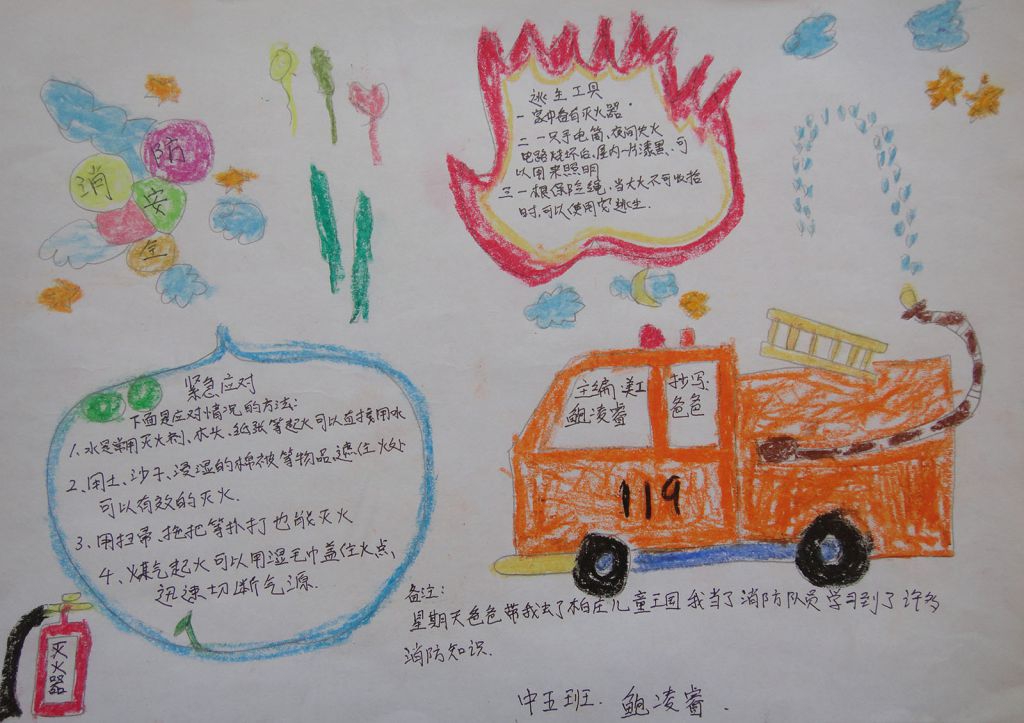 消防
安全
逃生工具
一家中备有灭火器.
二 一只手电筒,夜间失火
电路烧坏后,屋内一片漆黑,可
以用来照明
三 一根保险绳,当大火不可收拾
时,可以使用它逃生.
紧急应对
下面是应对情况的方法:
1、水是常用灭火剂、木头、纸张等起火可以直接用水
2、用土、沙子、浸湿的棉被等物品,遮住火处
可以有效的灭火.
3、用扫帚、拖把等扑打也能灭火
4、煤气起火可以用湿毛巾盖住火点、
迅速切断气源.
主编 美工
鲍凌睿
抄写:
爸爸
119
灭火器
备注:
星期天爸爸带我去了柏庄儿童王国 我当了消防队员 学习到了许多
消防知识.
中五班. 鲍凌睿.